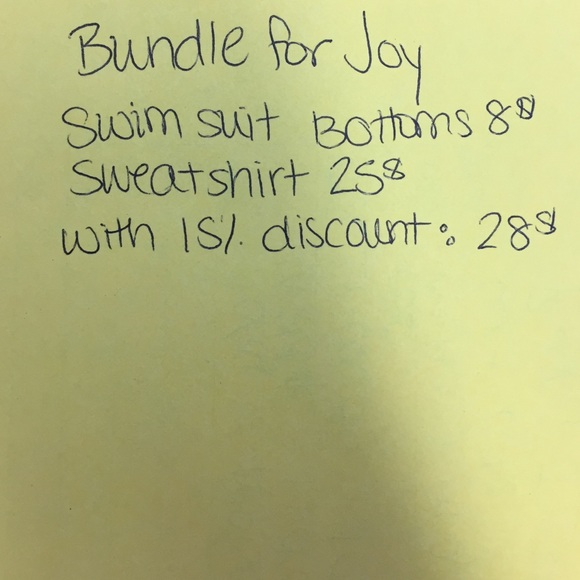 Bundle for Joy
Swim suit Bottoms 8$
Sweatshirt 25$
with 15% discount: 28$